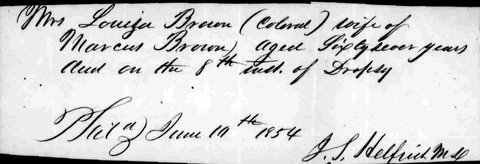 Mrs Louiza Brown (Colored) wife of
Marcus Brown, aged Sixty seven years
died on the 8th inst. of Dropsy
Phila June 10th 1854
J. S. Helfrich M.D